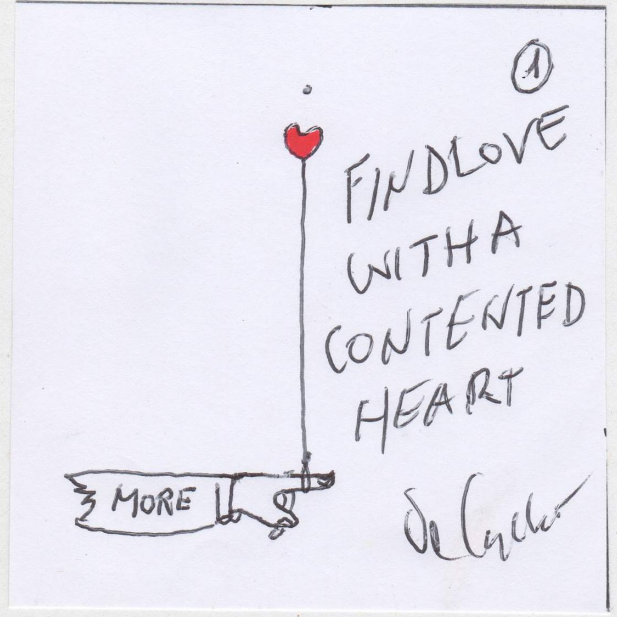 1
FIND LOVE
WITH A
CONTENTED
HEART
MORE